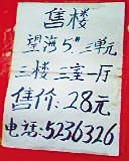 售楼
望海5#三单元
三楼三室一厅
售价:28元
电话:5236326